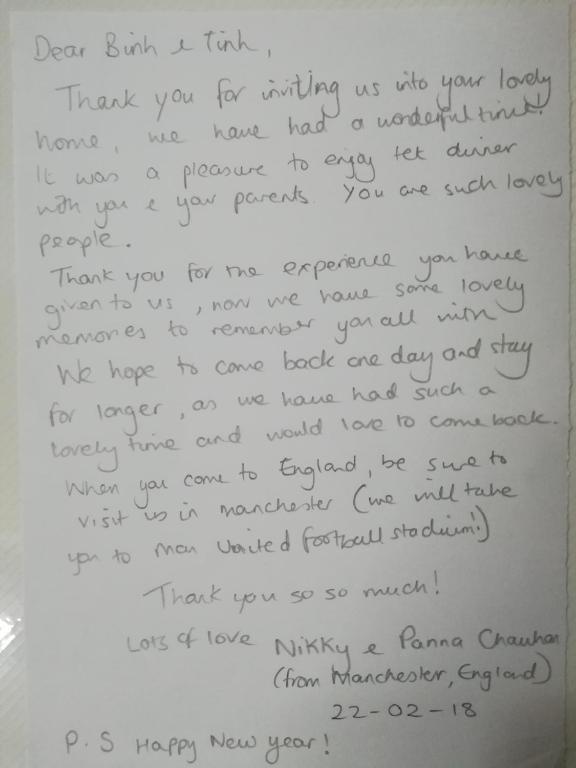 Dear Binh & Tinh,
Thank you for inviting us into your lovely
home, we have had a wonderful time!
It was a pleasure to enjoy tet dinner
with you & your parents. You are such lovely
people.
Thank you for the experience you have
given to us, now we have some lovely
memories to remember you all with
We hope to come back one day and stay
for longer, as we have had such a
lovely time and would love to come back.
When you come to England, be sure to
visit us in manchester (we will take
you to Man United football stadium!)
Thank you so so much!
Lots of love Nikky & Panna Chauhan
(from Manchester, England)
22-02-18
P.S Happy New year!